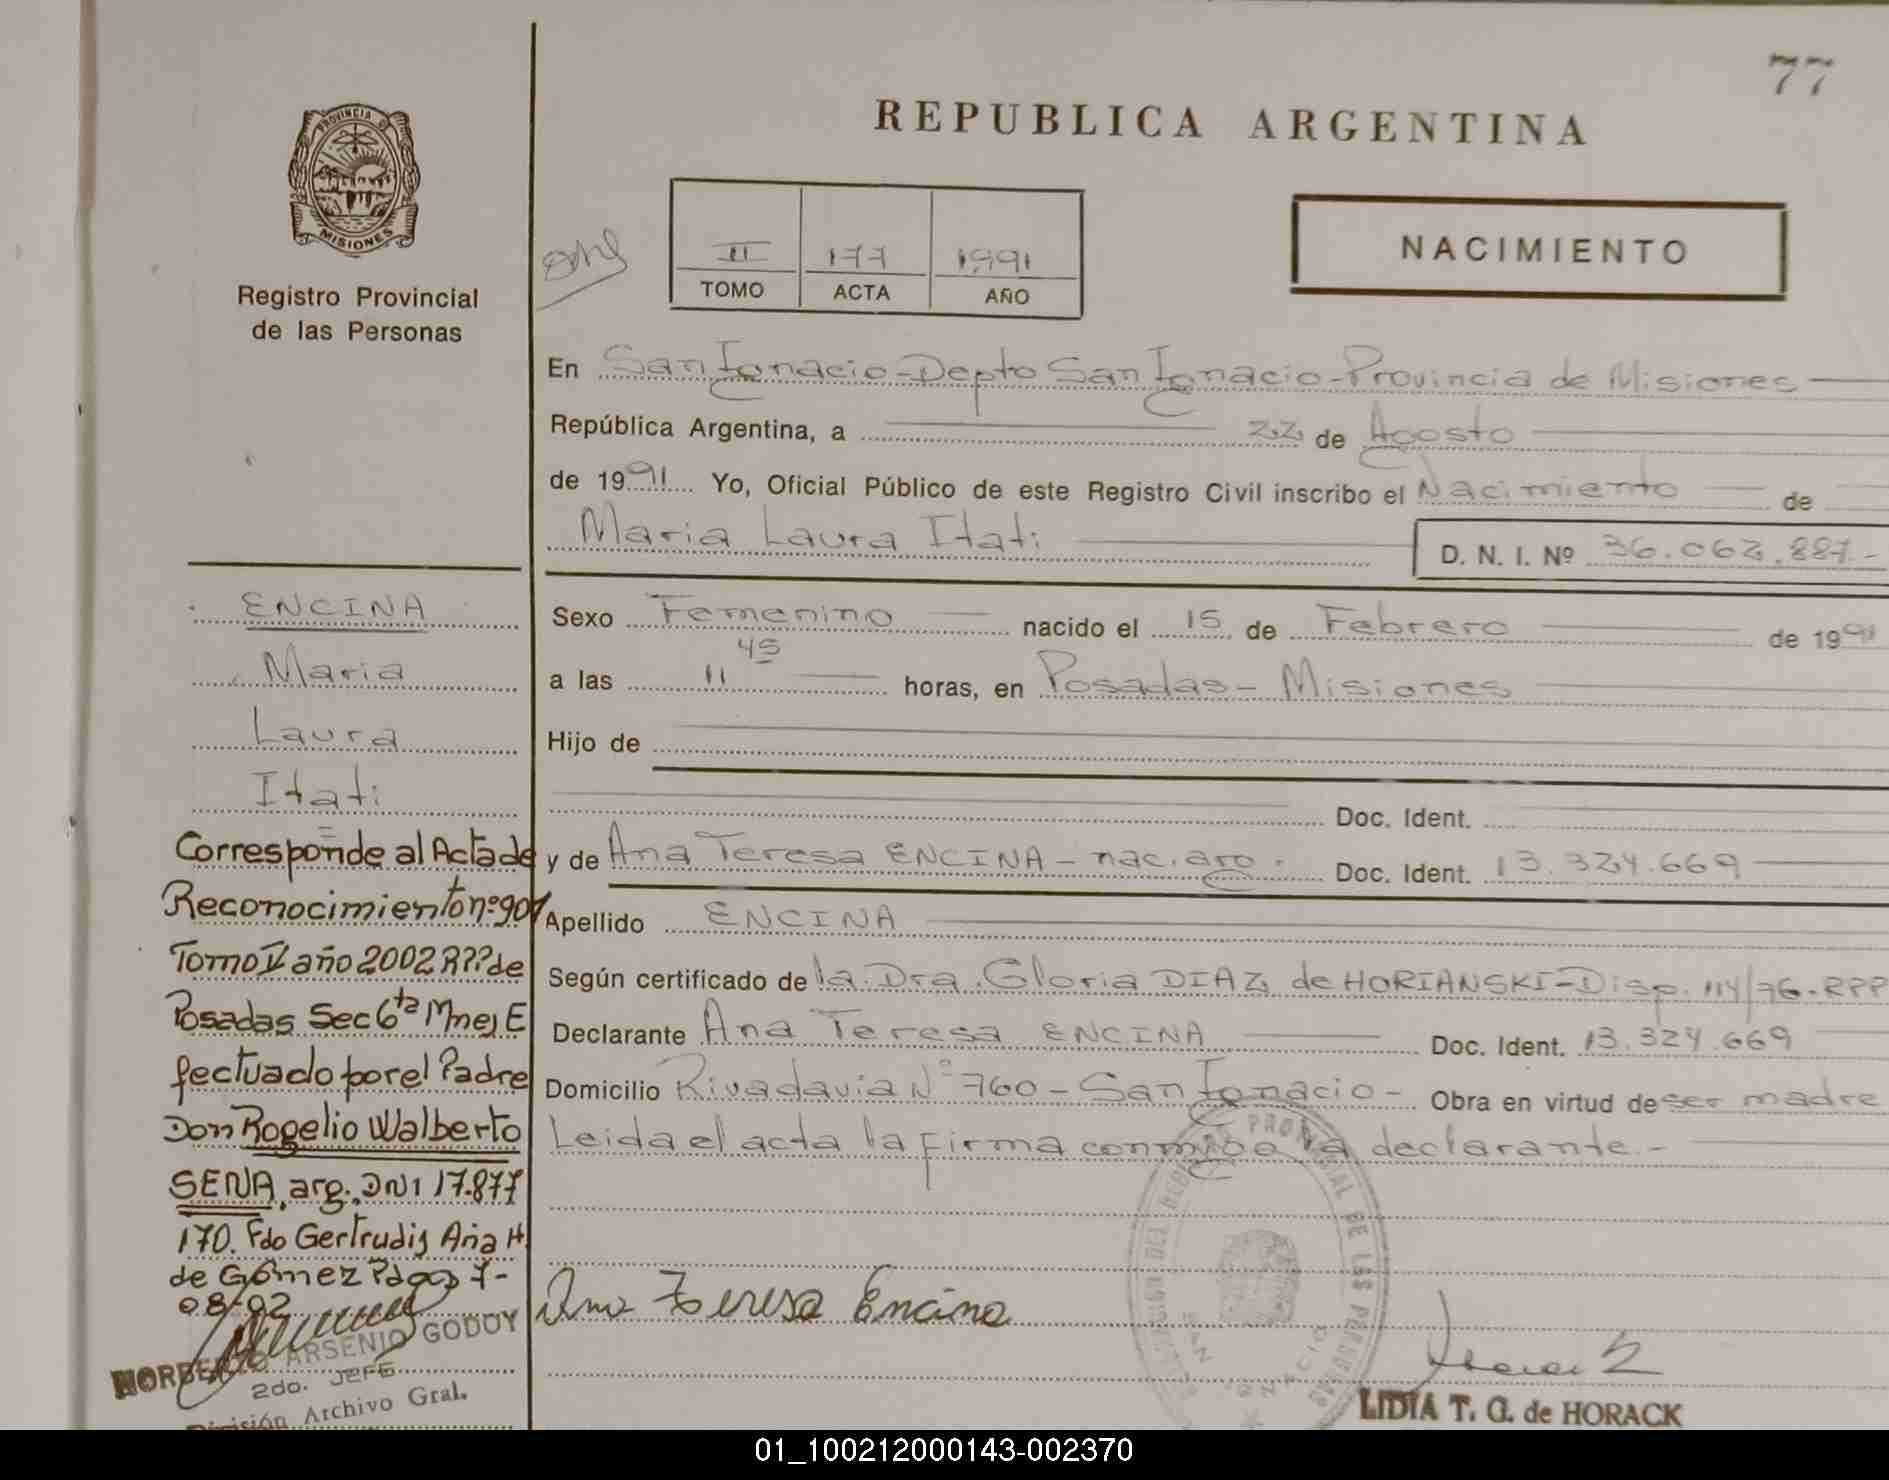 77
REPUBLICA ARGENTINA
PROVINCIA D
MISIONES
Registro Provincial
de las Personas
II 177 1991
TOMO ACTA AÑO
NACIMIENTO
En San Ignacio - Depto San Ignacio - Provincia de Misiones
República Argentina, a 22 de Agosto
de 1991 Yo, Oficial Público de este Registro Civil inscribo el Nacimiento de
Maria Laura Itati
D. N. I. Nº 36.062.887.-
Sexo Femenino nacido el 15 de Febrero de 1991
a las 11 45 horas, en Posadas - Misiones
Hijo de
Doc. Ident.
y de Ana Teresa ENCINA - nac. arg. Doc. Ident. 13.324.669
Apellido ENCINA
Según certificado de la Dra. Gloria DIAZ de HORIANSKI - Disp. 114/76 - RPP
Declarante Ana Teresa ENCINA Doc. Ident. 13.324.669
Domicilio Rivadavia Nº 760 - San Ignacio - Obra en virtud de ser madre
Leida el acta la firma conmigo la declarante.-
Ana Teresa Encina
LIDIA T. G. de HORACK
ENCINA
Maria
Laura
Itati
Corresponde al Acta de
Reconocimiento nº 907
Tomo V año 2002 R??de
Posadas Sec 6ta Mnes E
fectuado por el Padre
Don Rogelio Walberto
SENA, arg. DNI 17.877
170. Fdo Gertrudis Aña H.
de Gómez Pdas 7-
08-02
NORBERTO ARSENIO GODOY
2do. JEFE
División Archivo Gral.
01_100212000143-002370